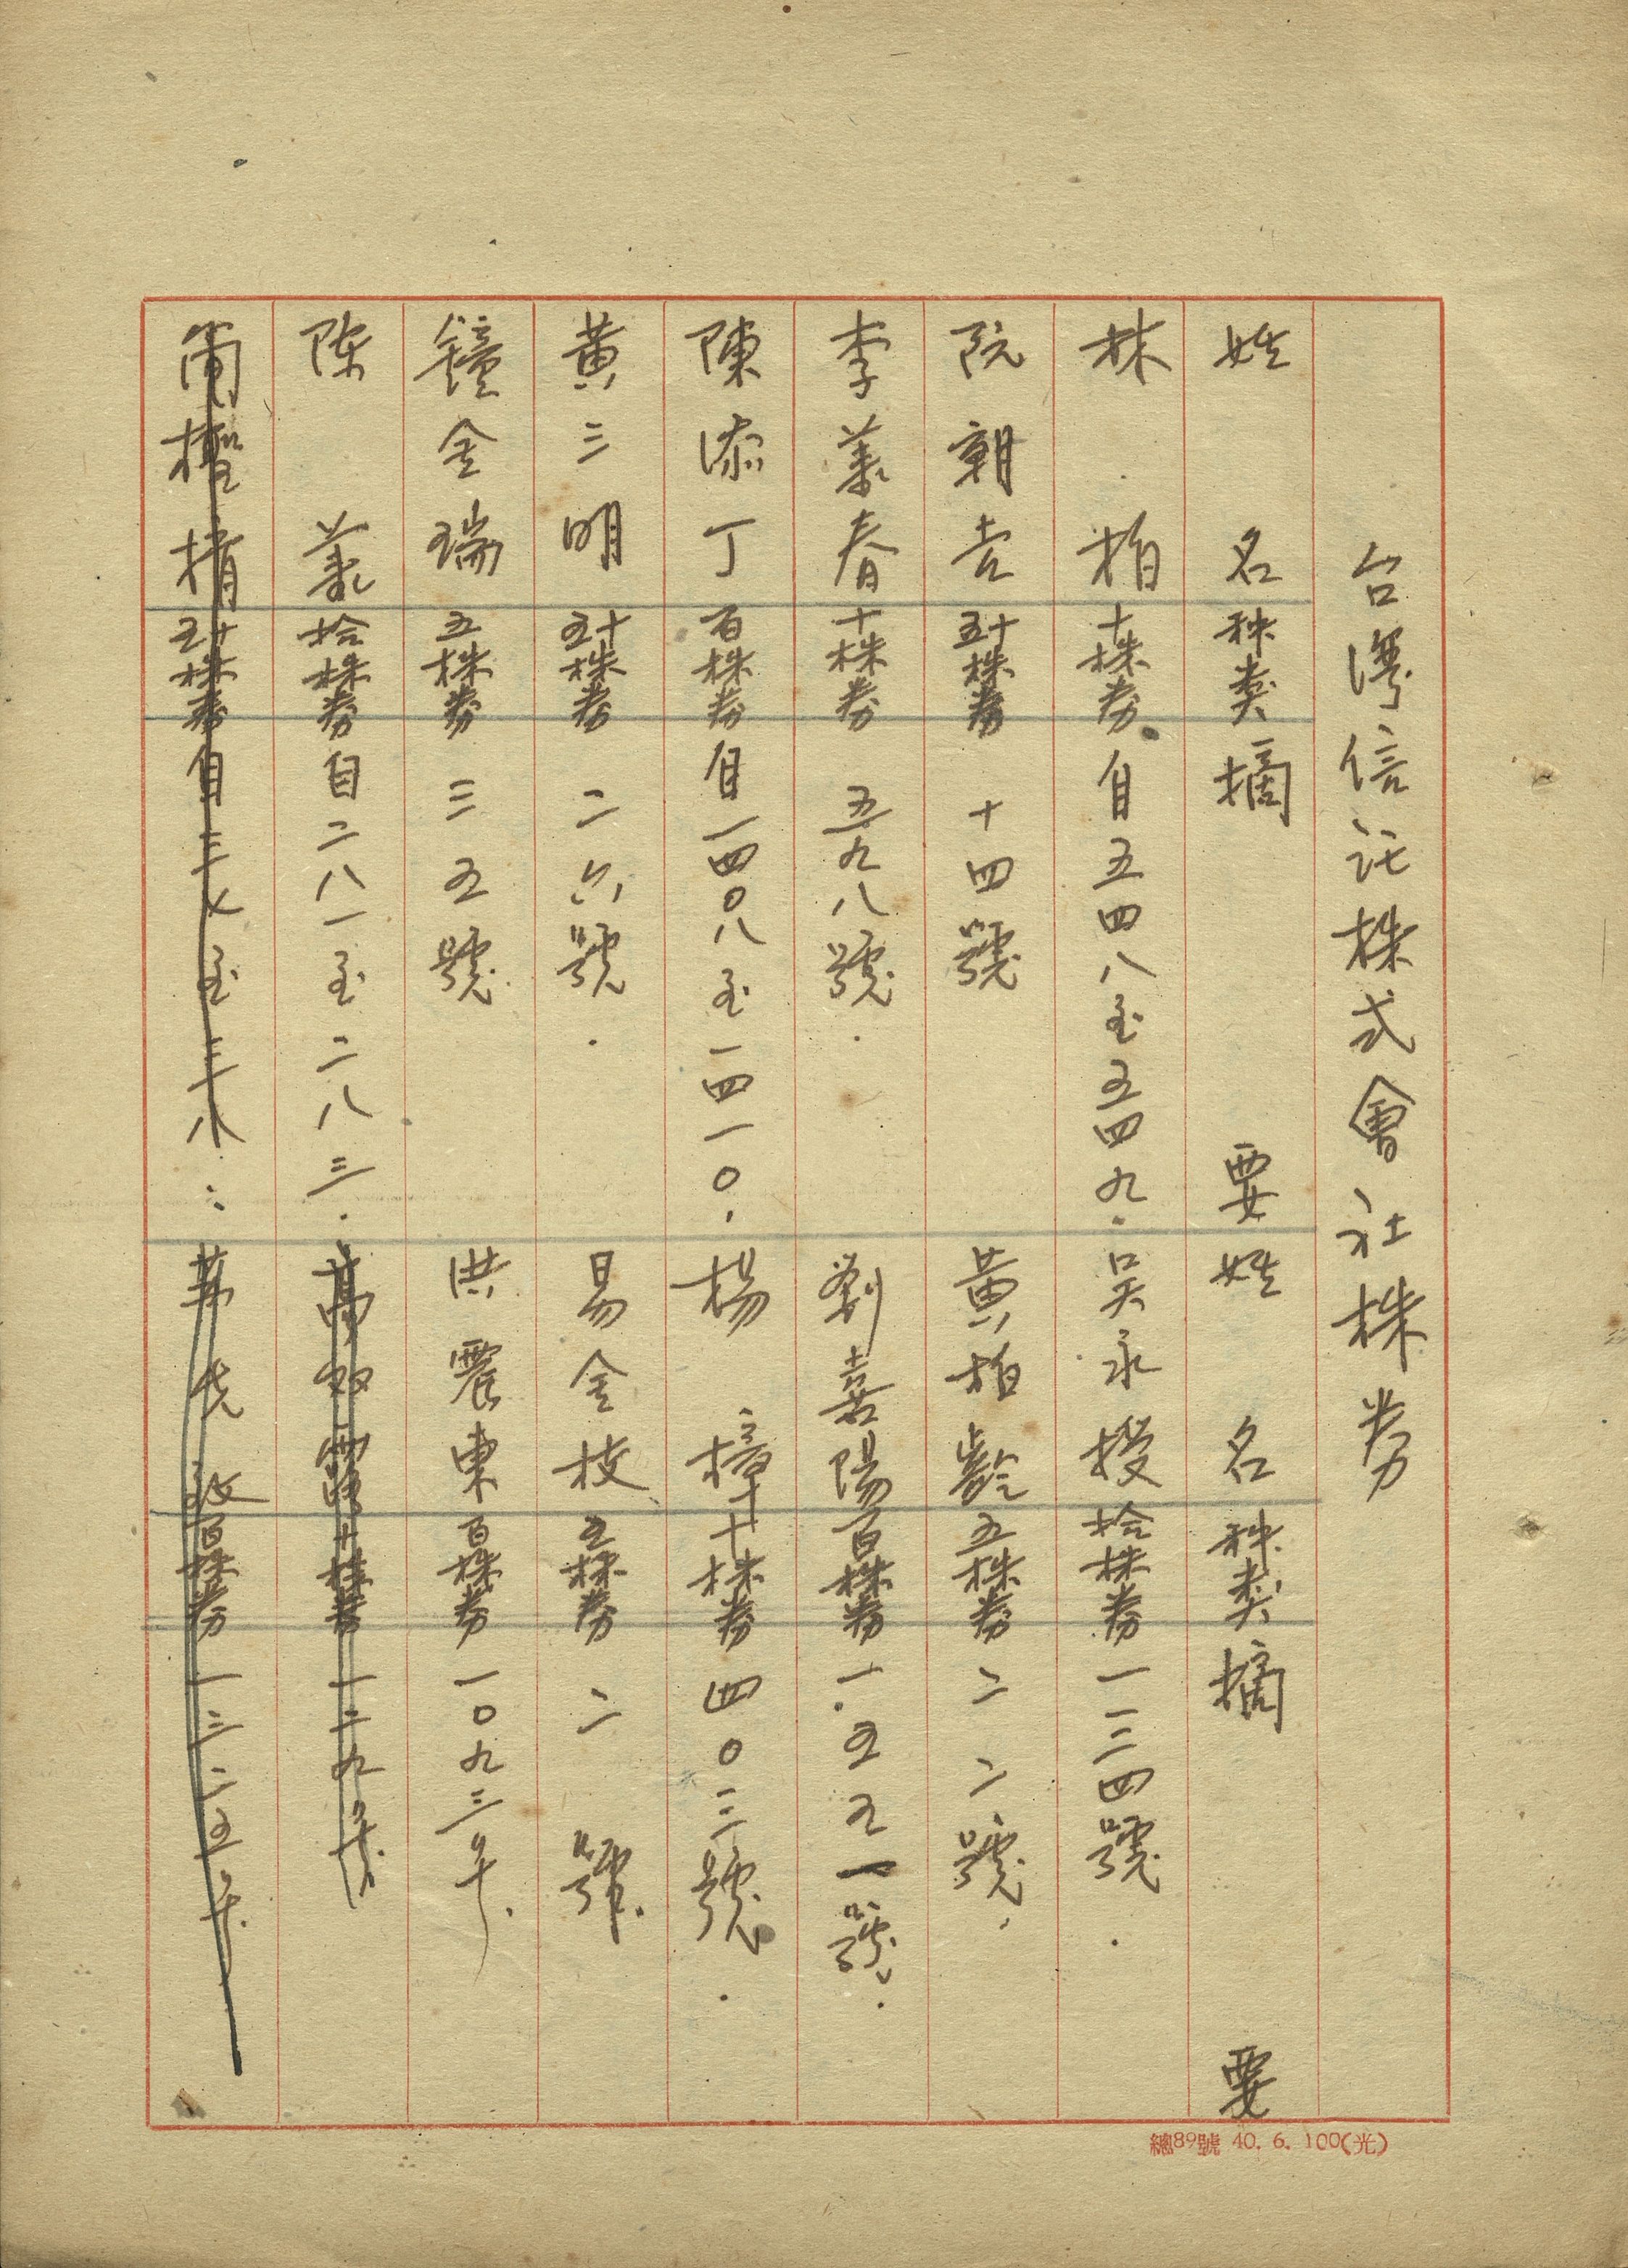 台灣信託株式會社株券
姓名 种类 摘要 姓名 种类 摘要
林柏 十株券 自五四八至五四九. 吳永授 拾株券 一一三四號.
阮朝吉 五十株券 十四號 黃柏齡 五株券 二二號.
李業春 十株券 五九八號. 劉嘉陽 百株券 一五五一號.
陳添丁 百株券 自一四〇八至一四一〇. 楊樟 十株券 四〇三號.
黃三明 五十株券 二六號. 易金枝 五株券 二號.
鐘金瑞 五株券 三五號. 洪震東 百株券 一〇九三号.
陈業 拾株券 自二八一至二八三. 十株券 一二九号
五十株券 自三七至三八 百株券 一三二五号
總89號 40.6.100(光)